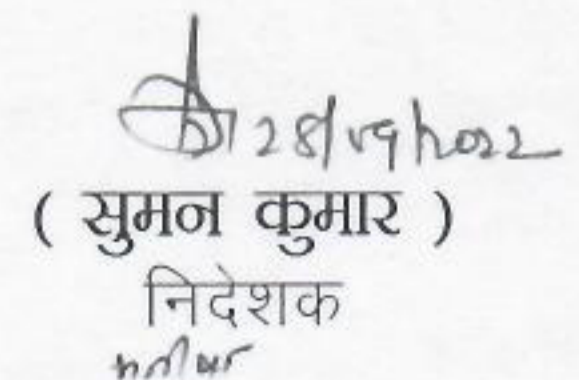 28/09/2022
( सुमन कुमार )
निदेशक